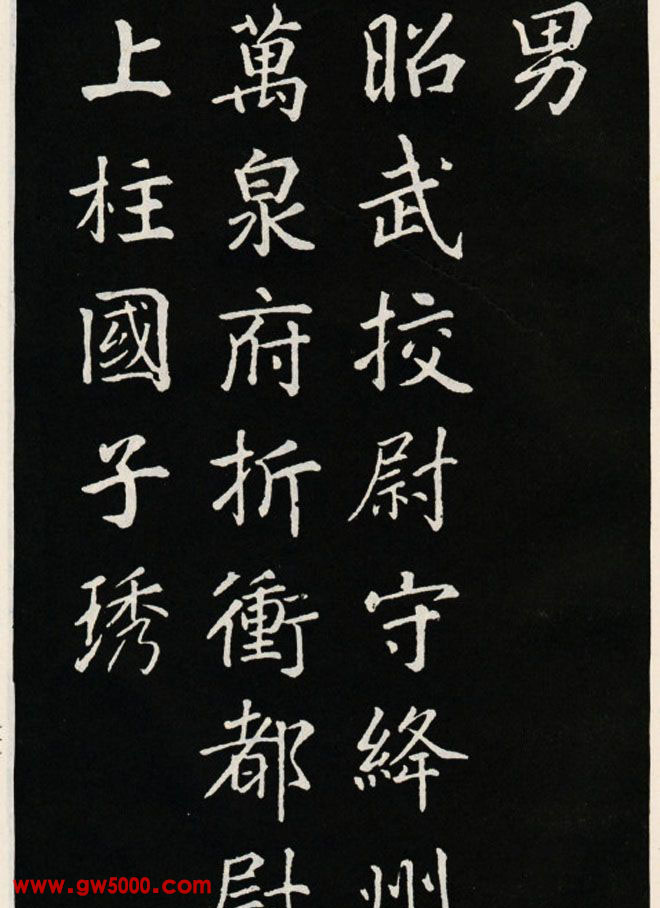 男
昭武挍尉守絳州
萬泉府折衝都尉
上柱國子琇
www.gw5000.com